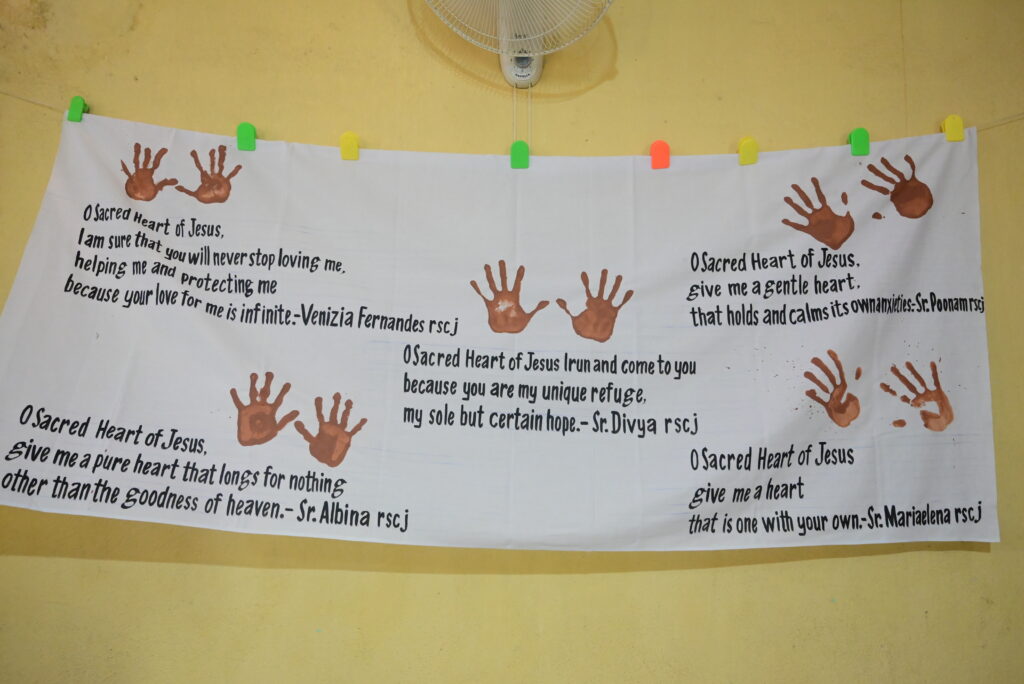 O Sacred Heart of Jesus,
I am sure that you will never stop loving me,
helping me and protecting me
because your love for me is infinite.-Venizia Fernandes rscj
O Sacred Heart of Jesus,
give me a pure heart that longs for nothing
other than the goodness of heaven.- Sr. Albina rscj
O Sacred Heart of Jesus I run and come to you
because you are my unique refuge,
my sole but certain hope.- Sr. Divya rscj
O Sacred Heart of Jesus.
give me a gentle heart,
that holds and calms its own anxieties.-Sr. Poonam rscj
O Sacred Heart of Jesus
give me a heart
that is one with your own.-Sr. Mariaelena rscj